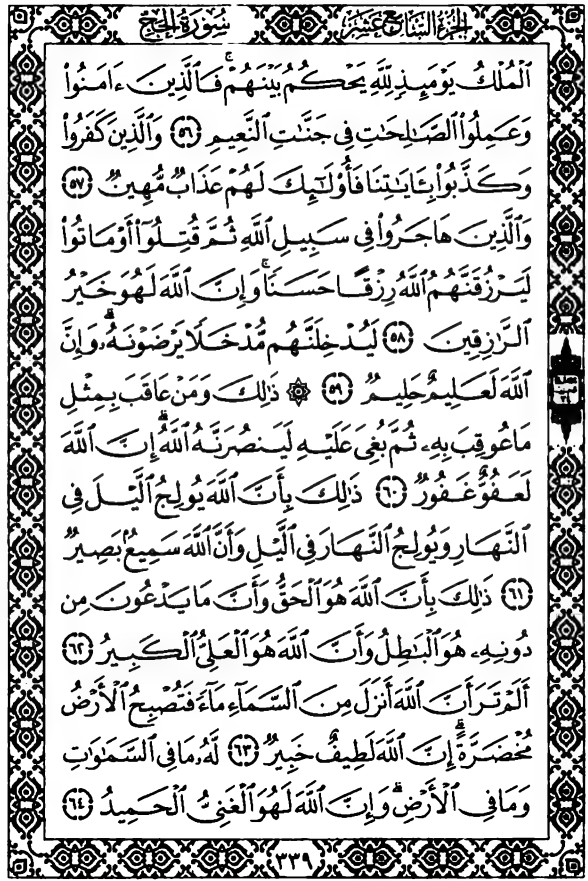 الجزء السابع عشر
سورة الحج
ٱلۡمُلۡكُ يَوۡمَئِذٖ لِّلَّهِ يَحۡكُمُ بَيۡنَهُمۡۚ فَٱلَّذِينَ ءَامَنُواْ
وَعَمِلُواْ ٱلصَّٰلِحَٰتِ فِي جَنَّٰتِ ٱلنَّعِيمِ ٥٦ وَٱلَّذِينَ كَفَرُواْ
وَكَذَّبُواْ بِـَٔايَٰتِنَا فَأُوْلَٰٓئِكَ لَهُمۡ عَذَابٞ مُّهِينٞ ٥٧
وَٱلَّذِينَ هَاجَرُواْ فِي سَبِيلِ ٱللَّهِ ثُمَّ قُتِلُوٓاْ أَوۡ مَاتُواْ
لَيَرۡزُقَنَّهُمُ ٱللَّهُ رِزۡقًا حَسَنٗاۚ وَإِنَّ ٱللَّهَ لَهُوَ خَيۡرُ
ٱلرَّٰزِقِينَ ٥٨ لَيُدۡخِلَنَّهُم مُّدۡخَلٗا يَرۡضَوۡنَهُۥۚ وَإِنَّ
ٱللَّهَ لَعَلِيمٌ حَلِيمٞ ٥٩ ۞ ذَٰلِكَۖ وَمَنۡ عَاقَبَ بِمِثۡلِ
مَا عُوقِبَ بِهِۦ ثُمَّ بُغِيَ عَلَيۡهِ لَيَنصُرَنَّهُ ٱللَّهُۚ إِنَّ ٱللَّهَ
لَعَفُوٌّ غَفُورٞ ٦٠ ذَٰلِكَ بِأَنَّ ٱللَّهَ يُولِجُ ٱلَّيۡلَ فِي
ٱلنَّهَارِ وَيُولِجُ ٱلنَّهَارَ فِي ٱلَّيۡلِ وَأَنَّ ٱللَّهَ سَمِيعُۢ بَصِيرٞ
٦١ ذَٰلِكَ بِأَنَّ ٱللَّهَ هُوَ ٱلۡحَقُّ وَأَنَّ مَا يَدۡعُونَ مِن
دُونِهِۦ هُوَ ٱلۡبَٰطِلُ وَأَنَّ ٱللَّهَ هُوَ ٱلۡعَلِيُّ ٱلۡكَبِيرُ ٦٢
أَلَمۡ تَرَ أَنَّ ٱللَّهَ أَنزَلَ مِنَ ٱلسَّمَآءِ مَآءٗ فَتُصۡبِحُ ٱلۡأَرۡضُ
مُخۡضَرَّةًۚ إِنَّ ٱللَّهَ لَطِيفٌ خَبِيرٞ ٦٣ لَّهُۥ مَا فِي ٱلسَّمَٰوَٰتِ
وَمَا فِي ٱلۡأَرۡضِۚ وَإِنَّ ٱللَّهَ لَهُوَ ٱلۡغَنِيُّ ٱلۡحَمِيدُ ٦٤
٣٣٩